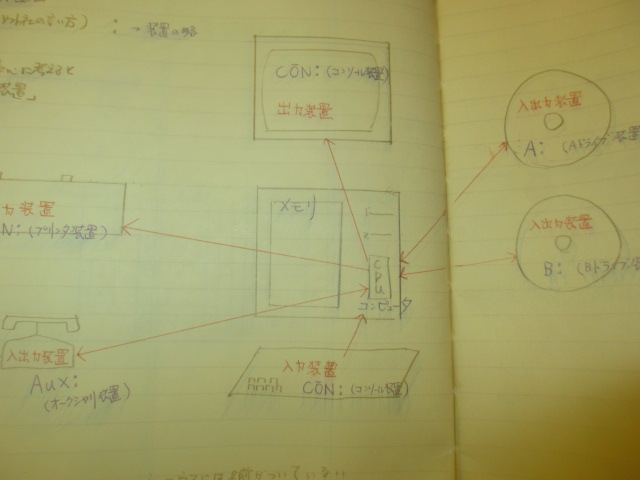 : →装置の略
に考えると
装置」
CON: (コンソール装置)
出力装置
入出力装置
A: (Aドライブ装置
力装置
N: (プリンタ装置)
メモリ
CPU
コンピュータ
入出力装置
B: (Bドライブ装
入出力装置
AUX:
(オークシャリ装置)
入力装置
CON: (コンソール装置)